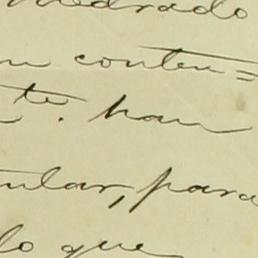 medrado
conten=
te. han
tular, para
lo que